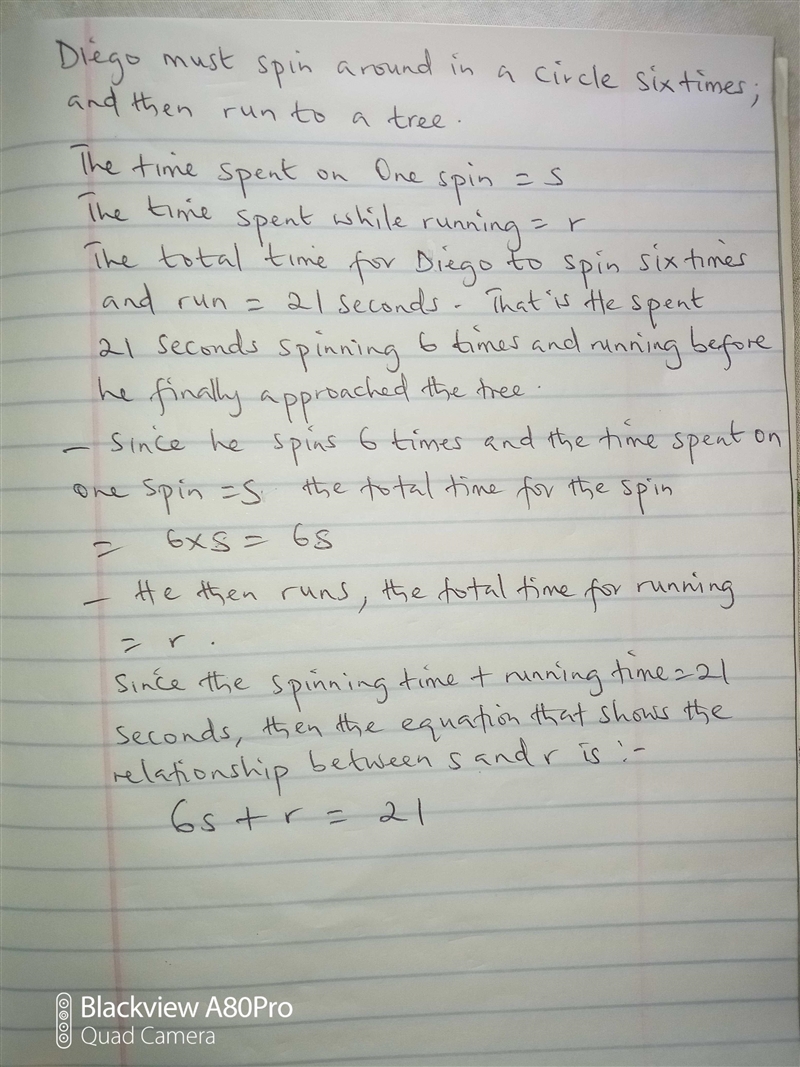 Diego must spin around in a circle six times;
and then run to a tree.
The time spent on One spin = s
The time spent while running = r
The total time for Diego to spin six times
and run = 21 seconds. That is He spent
21 seconds spinning 6 times and running before
he finally approached the tree.
- Since he spins 6 times and the time spent on
one spin = s. the total time for the spin
= 6xs = 6s
- He then runs, the total time for running
= r.
Since the spinning time + running time = 21
seconds, then the equation that shows the
relationship between s and r is :-
6s + r = 21
Blackview A80Pro
Quad Camera